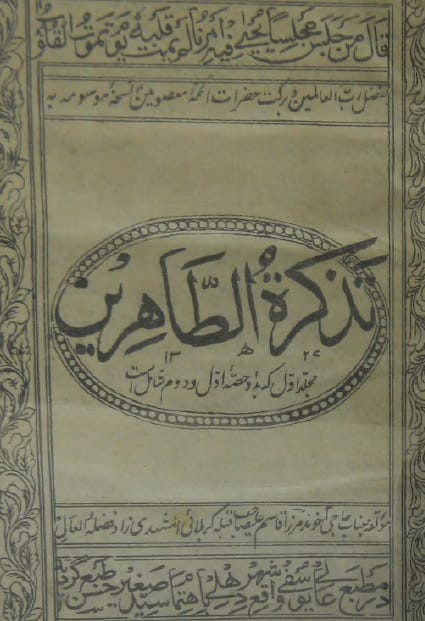 قال من جلس مجلسا يحيى فيه امرنا لم يمت قلبه يوم تموت القلوب
بفضل رب العالمین و برکت حضرات ائمهٔ معصومین نسخهٔ موسومه به
تذکرة الطّاهرین
۱۳ ھ ۲۷
مجلد اول که بر حصهٔ اول و دوم شامل است
مؤلفه جناب حاجی آخوند مرزا قاسم علی صاحب قبله کربلائی المشهدی زاد فضله العالی
در مطبع یوسفی واقع شهر دهلی باهتمام سید صغیر حسن طبع گردید